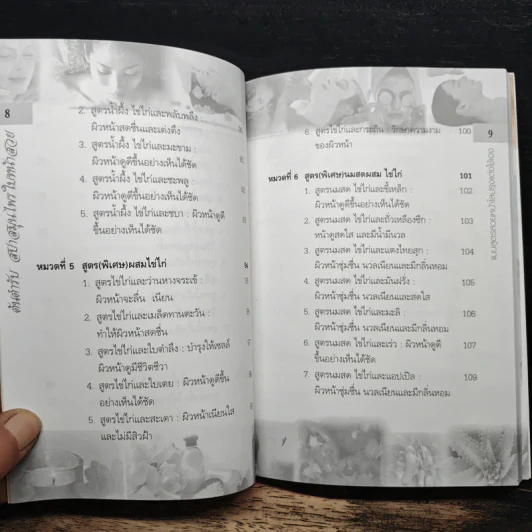 8
ต้นตำรับ สปาสมุนไพร ใบหน้าสวย
2. สูตรน้ำผึ้ง ไข่ไก่และพลับพลึง :
ผิวหน้าสดชื่นและเต่งตึง
3. สูตรน้ำผึ้ง ไข่ไก่และมะขาม :
ผิวหน้าดูดีขึ้นอย่างเห็นได้ชัด
4. สูตรน้ำผึ้ง ไข่ไก่และชะพลู :
ผิวหน้าดูดีขึ้นอย่างเห็นได้ชัด
5. สูตรน้ำผึ้ง ไข่ไก่และชบา : ผิวหน้าดูดี
ขึ้นอย่างเห็นได้ชัด
หมวดที่ 5 สูตร(พิเศษ)ผสมไข่ไก่
1. สูตรไข่ไก่และว่านหางจระเข้ :
ผิวหน้าจะลื่น เนียน
2. สูตรไข่ไก่และเมล็ดทานตะวัน :
ทำให้ผิวหน้าสดชื่น
3. สูตรไข่ไก่และใบตำลึง : บำรุงให้เซลล์
ผิวหน้ามีชีวิตชีวา
4. สูตรไข่ไก่และใบเตย : ผิวหน้าดูดีขึ้น
อย่างเห็นได้ชัด
5. สูตรไข่ไก่และสะเดา : ผิวหน้าเนียนใส
และไม่มีสิวฝ้า
9
6. สูตรไข่ไก่และกระถิน : รักษาความงาม 100
ของผิวหน้า
หมวดที่ 6 สูตร(พิเศษ)นมสดผสม ไข่ไก่ 101
1. สูตรนมสด ไข่ไก่และขี้เหล็ก : 102
ผิวหน้าดูดีขึ้นอย่างเห็นได้ชัด
2. สูตรนมสด ไข่ไก่และถั่วเหลืองซีก : 103
หน้าดูสดใส และมีน้ำมีนวล
3. สูตรนมสด ไข่ไก่และแตงไทยสุก : 104
ผิวหน้าชุ่มชื่น นวลเนียนและมีกลิ่นหอม
4. สูตรนมสด ไข่ไก่และมันฝรั่ง : 105
ผิวหน้าชุ่มชื่น นวลเนียนและสดใส
5. สูตรนมสด ไข่ไก่และมะลิ : 106
ผิวหน้าชุ่มชื่น นวลเนียนและมีกลิ่นหอม
6. สูตรนมสด ไข่ไก่และเร่ว : ผิวหน้าดูดี 107
ขึ้นอย่างเห็นได้ชัด
7. สูตรนมสด ไข่ไก่และแอปเปิ้ล : 109
ผิวหน้าชุ่มชื่น นวลเนียนและมีกลิ่นหอม